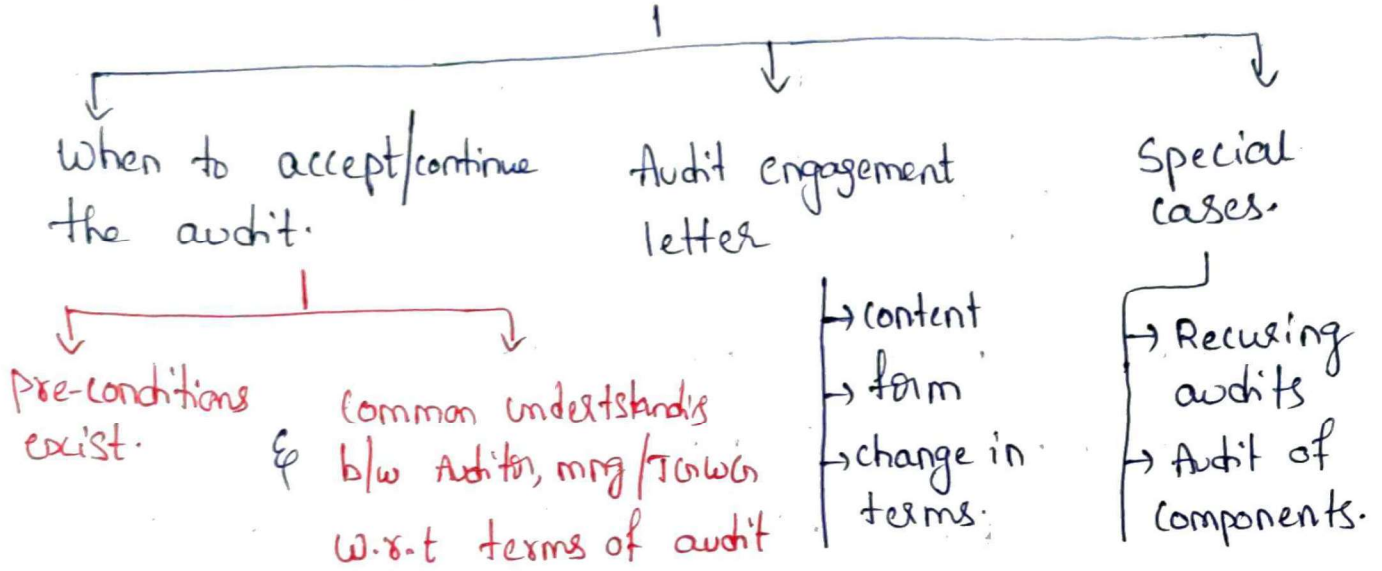 When to accept/continue
the audit.
Audit engagement
letter
Special
cases.
Pre-conditions
exist.
&
Common undertstandig
b/w Auditor, mng/TCWG
w.r.t terms of audit
→ content
→ form
→ change in
terms.
→ Recuring
audits
→ Audit of
components.